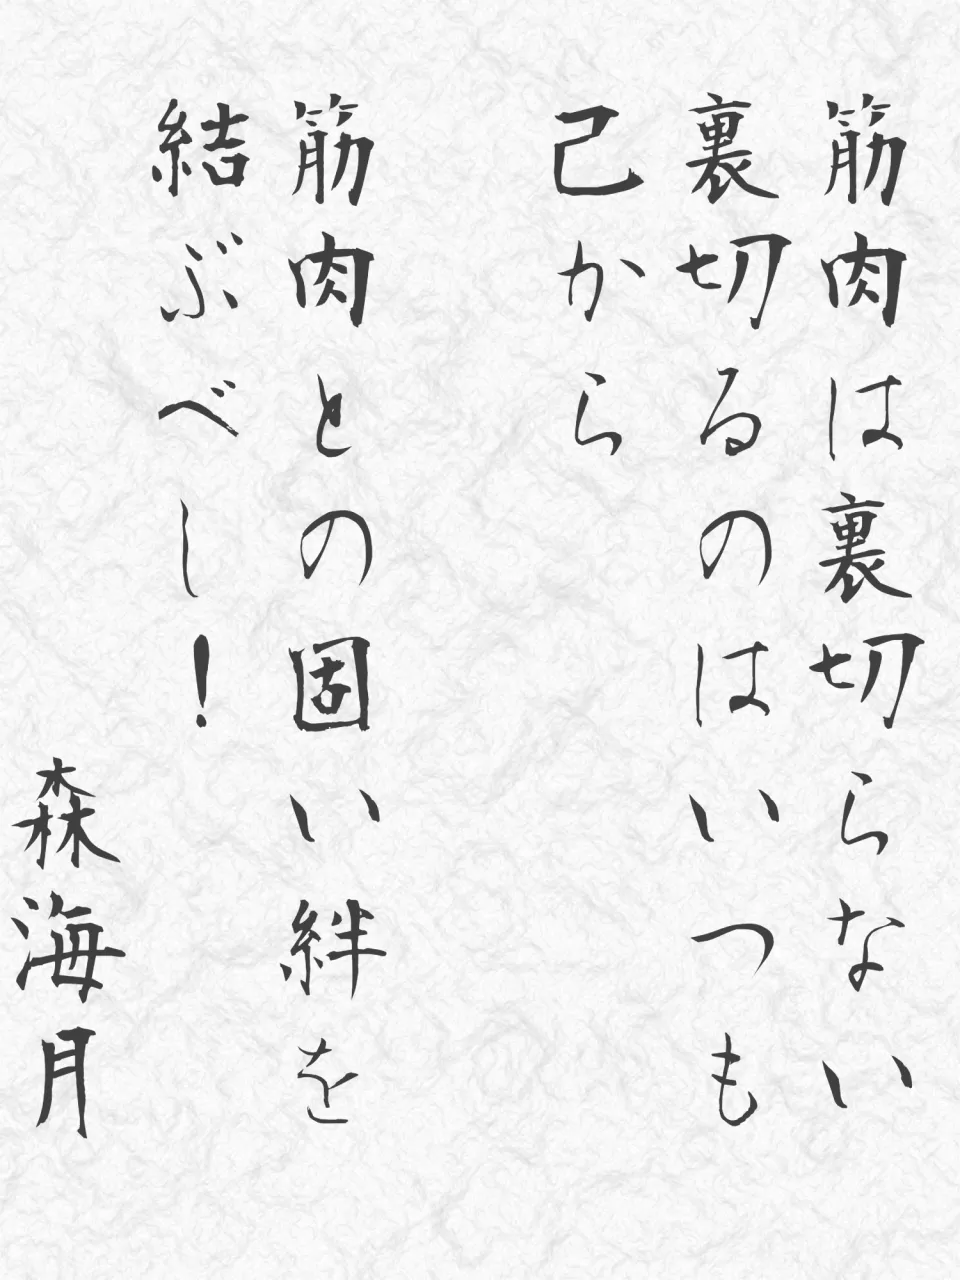 筋肉は裏切らない
裏切るのはいつも
己から
筋肉との固い絆を
結ぶべし!
森海月